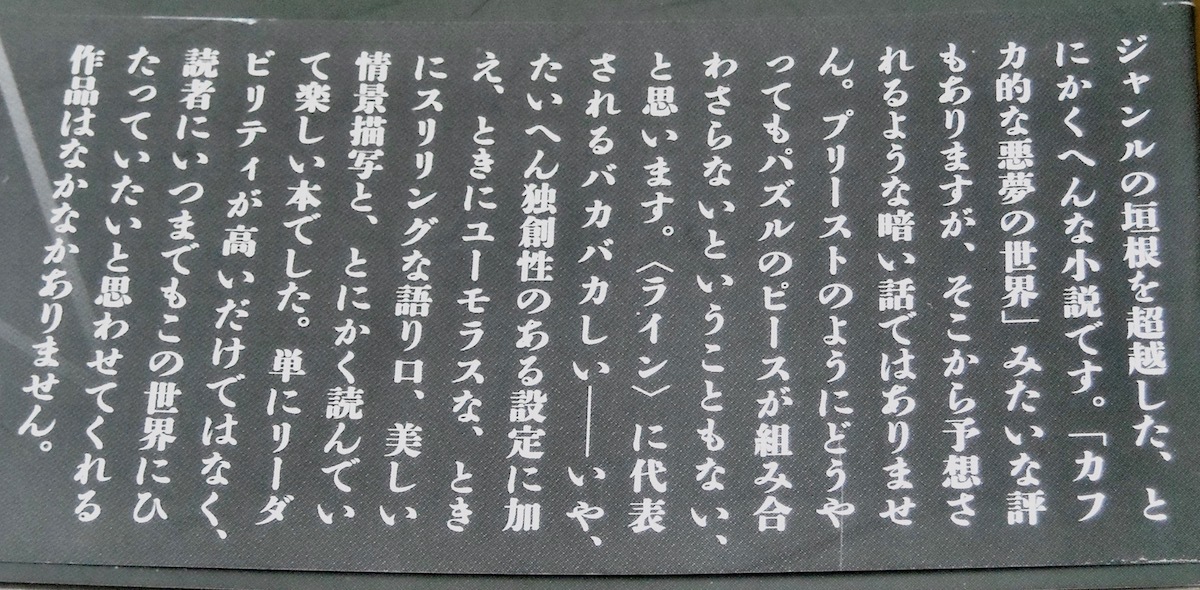 ジャンルの垣根を超越した、と
にかくへんな小説です。「カフ
カ的な悪夢の世界」みたいな評
もありますが、そこから予想さ
れるような暗い話ではありませ
ん。プリーストのようにどうや
ってもパズルのピースが組み合
わさらないということもない、
と思います。〈ライン〉に代表
されるバカバカしい――いや、
たいへん独創性のある設定に加
え、ときにユーモラスな、とき
にスリリングな語り口、美しい
情景描写と、とにかく読んでい
て楽しい本でした。単にリーダ
ビリティが高いだけではなく、
読者にいつまでもこの世界にひ
たっていたいと思わせてくれる
作品はなかなかありません。